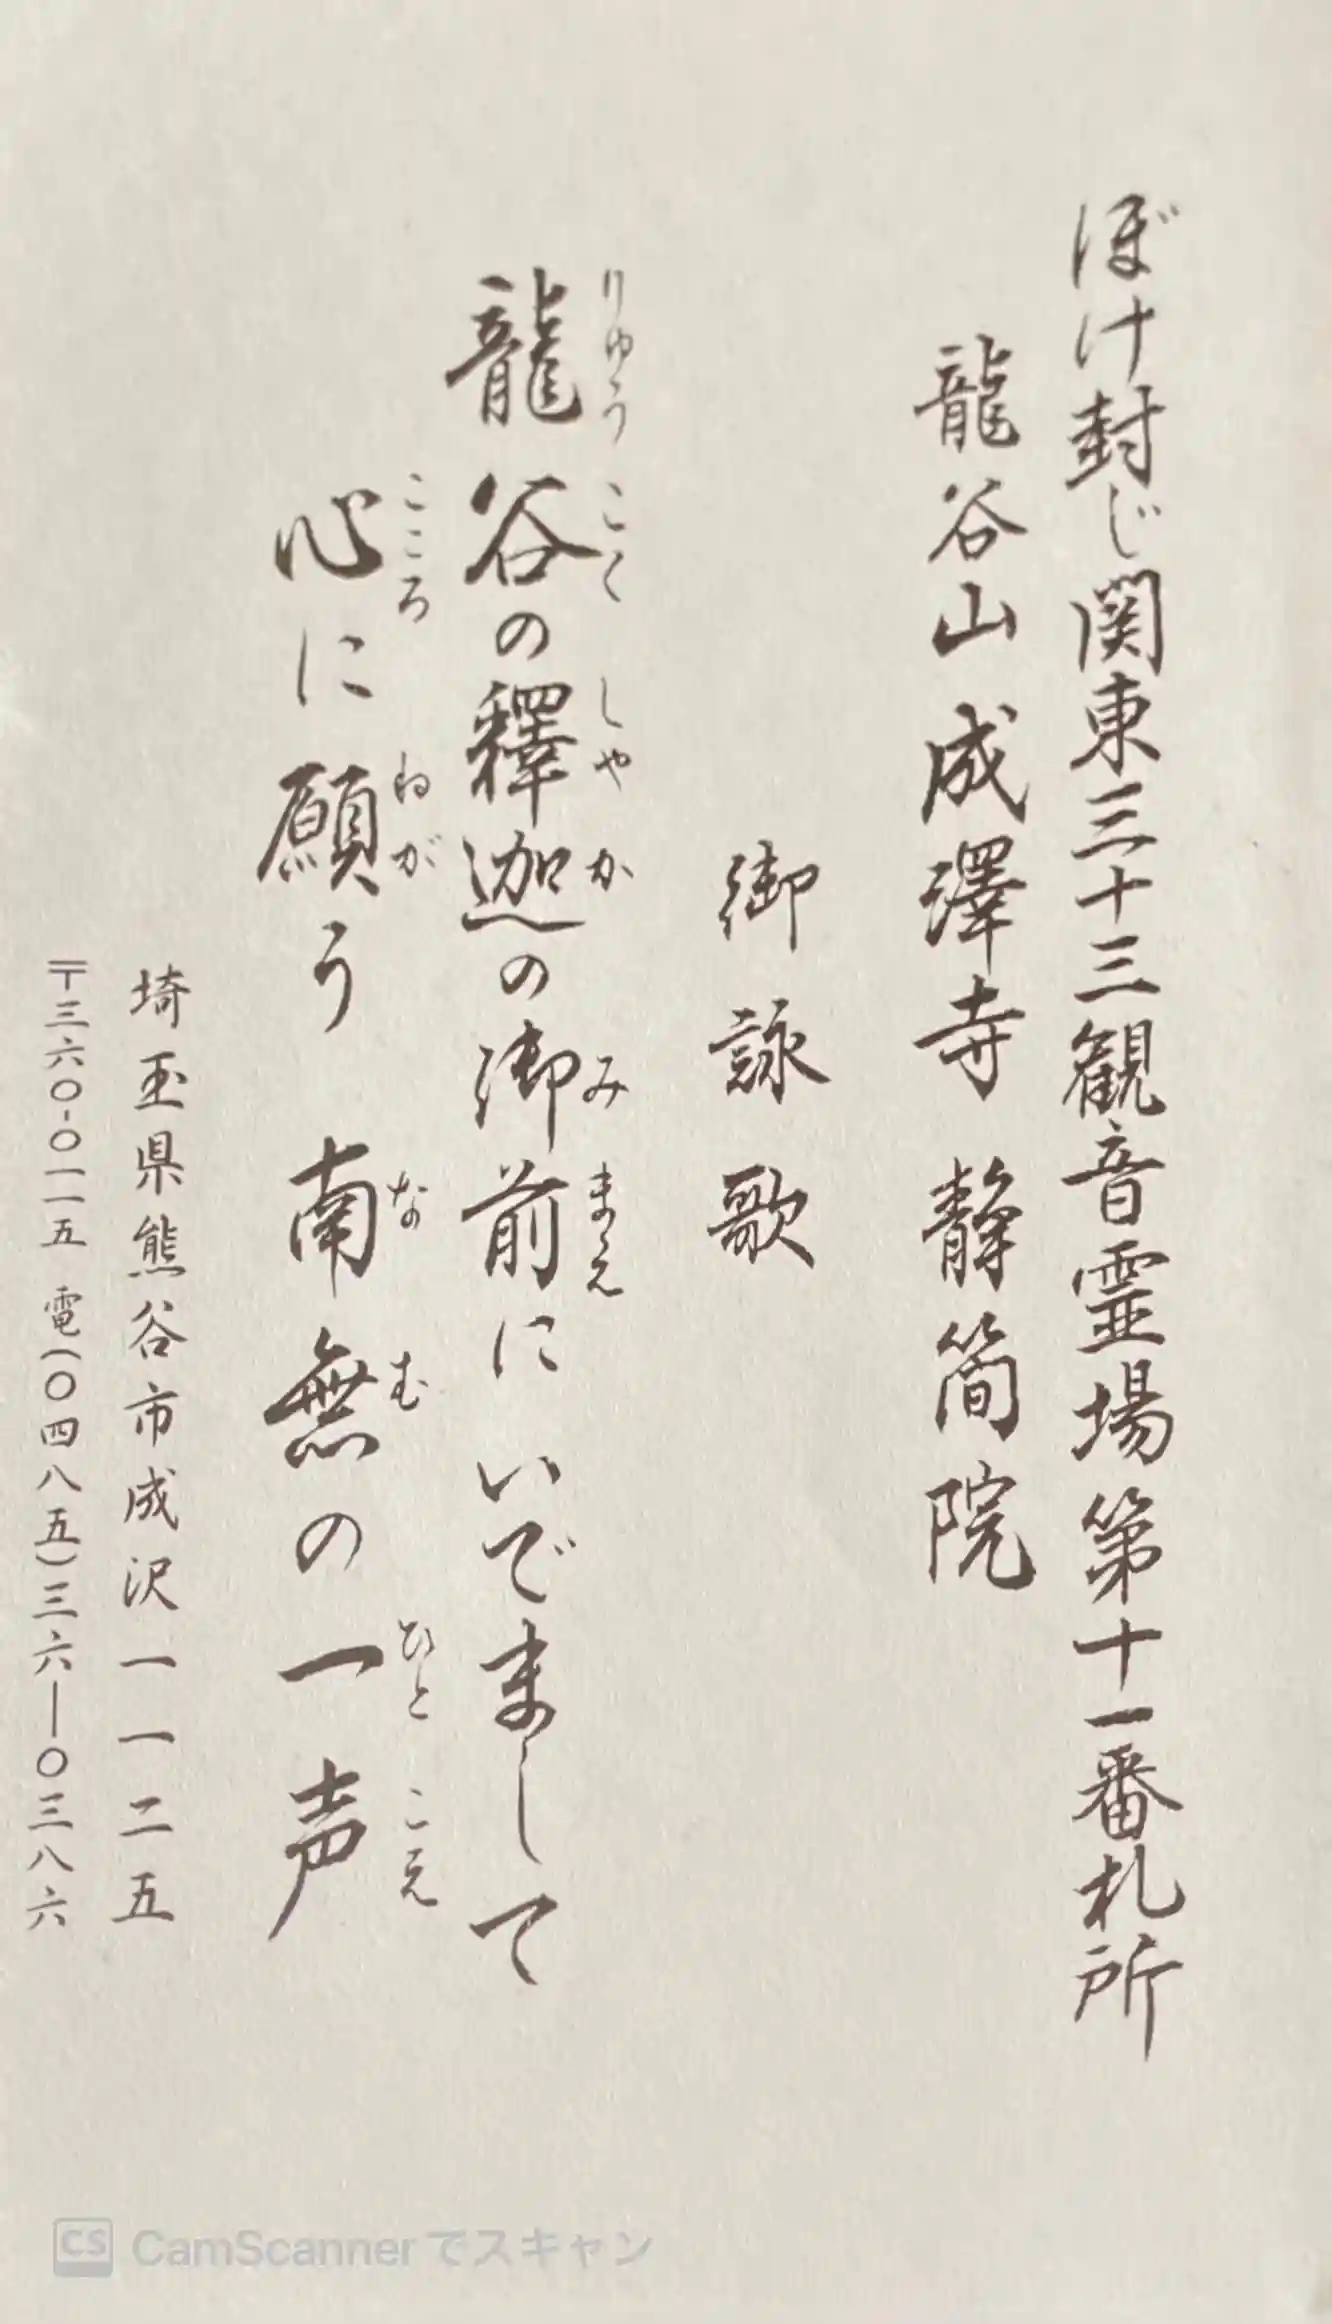 ぼけ封じ関東三十三観音霊場第十一番札所
龍谷山成澤寺静簡院
御詠歌
りゅうこくしゃかみまえ
龍谷の釋迦の御前にいでまして
こころねがなむひとこえ
心に願う南無の一声
埼玉県熊谷市成沢一一二五
〒三六〇-〇一一五 電(〇四八五)三六―〇三八六
CS CamScannerでスキャン